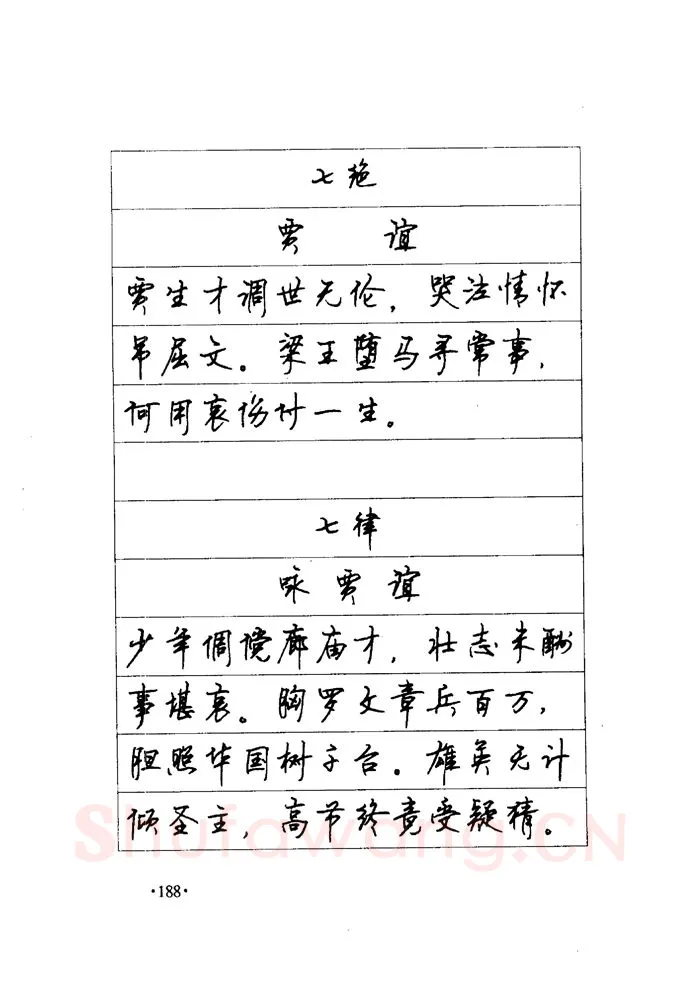 七绝
贾 谊
贾生才调世无伦，哭泣情怀
吊屈文。梁王堕马寻常事，
何用哀伤付一生。
七律
咏贾谊
少年倜傥廊庙才，壮志未酬
事堪哀。胸罗文章兵百万，
胆照华国树千台。雄英无计
倾圣主，高节终竟受疑猜。
Shufawang.CN
·188·